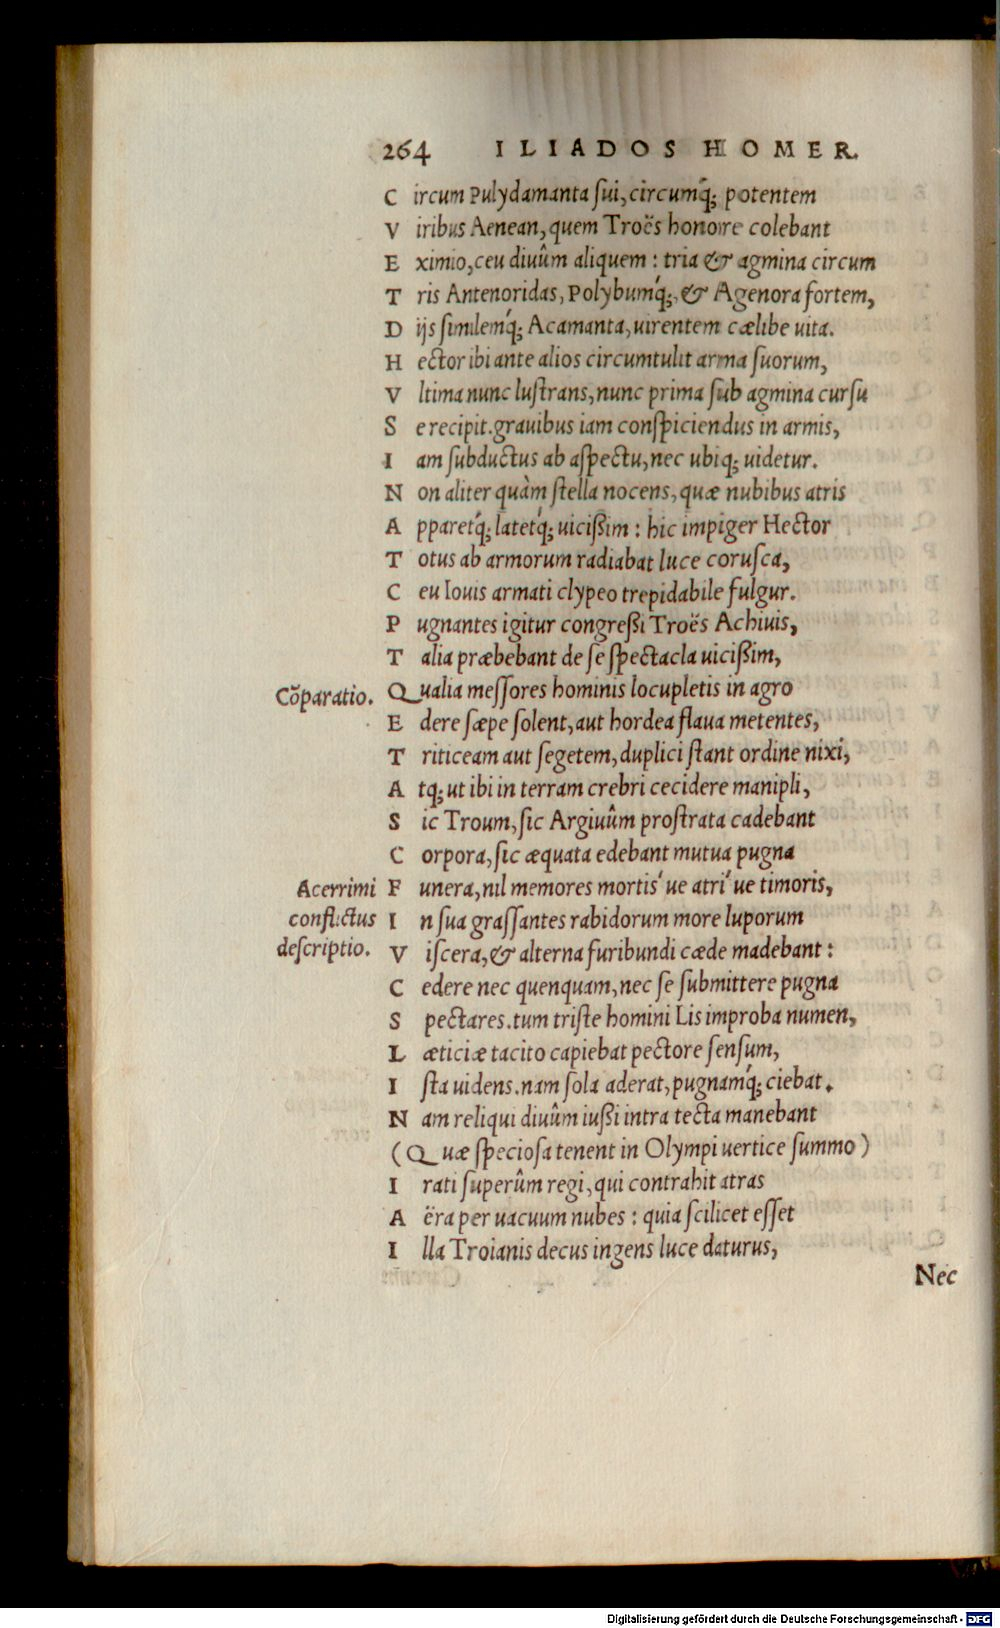 264 ILIADOS HOMER.
C ircum Pulydamanta sui, circumq́; potentem
V iribus Aenean, quem Troës honore colebant
E ximio, ceu diuûm aliquem : tria & agmina circum
T ris Antenoridas, Polybumq́;, & Agenora fortem,
D ijs similemq́; Acamanta, uirentem cælibe uita.
H ector ibi ante alios circumtulit arma suorum,
V ltima nunc lustrans, nunc prima sub agmina cursu
S e recipit. grauibus iam conspiciendus in armis,
I am subductus ab aspectu, nec ubiq; uidetur.
N on aliter quàm stella nocens, quæ nubibus atris
A pparetq́; latetq́; uicißim : hic impiger Hector
T otus ab armorum radiabat luce corusca,
C eu Iouis armati clypeo trepidabile fulgur.
P ugnantes igitur congreßi Troës Achiuis,
T alia præbebant de se spectacla uicißim,
Cõparatio. Qualia messores hominis locupletis in agro
E dere sæpe solent, aut hordea flaua metentes,
T riticeam aut segetem, duplici stant ordine nixi,
A tq; ut ibi in terram crebri cecidere manipli,
S ic Troum, sic Argiuûm prostrata cadebant
C orpora, sic æquata edebant mutua pugna
Acerrimi F unera, nil memores mortis'ue atri'ue timoris,
conflictus I n sua grassantes rabidorum more luporum
descriptio. V iscera, & alterna furibundi cæde madebant :
C edere nec quenquam, nec se submittere pugna
S pectares. tum triste homini Lis improba numen,
L æticiæ tacito capiebat pectore sensum,
I sta uidens. nam sola aderat, pugnamq́; ciebat.
N am reliqui diuûm iußi intra tecta manebant
(Quæ speciosa tenent in Olympi uertice summo)
I rati superûm regi, qui contrahit atras
A ëra per uacuum nubes : quia scilicet esset
I lla Troianis decus ingens luce daturus,
Nec
Digitalisierung gefördert durch die Deutsche Forschungsgemeinschaft - DFG